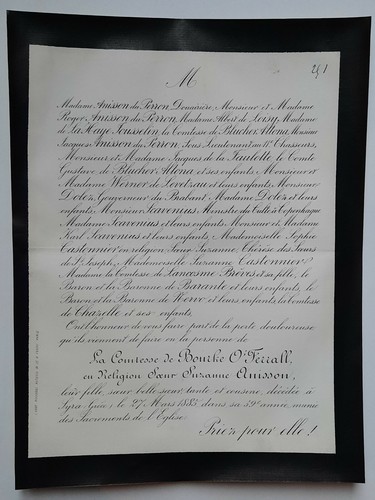 M
Madame Anisson du Perron, Douairière, Monsieur et Madame
Roger Anisson du Perron, Madame Albert de Loisy, Madame
de La Haye Jousselin, la Comtesse de Blücher Altona, Monsieur
Jacques Anisson du Perron, Sous Lieutenant au Chasseurs,
Monsieur et Madame Jacques de la Faulotte, le Comte
Gustave de Blücher Altona et ses enfants, Monsieur et
Madame Werner de Levetzau et leurs enfants, Monsieur
Dolez, Gouverneur du Brabant, Madame Dolez et leurs
enfants, Monsieur Scavenius, Ministre du Culte à Copenhague
Madame Scavenius et leurs enfants, Monsieur et Madame
Karl Scavenius et leurs enfants, Mademoiselle Sophie
Castonnier en religion Sœur Suzanne Thérèse des Sœurs
de St Joseph, Mademoiselle Suzanne Castonnier,
Madame la Comtesse de Lancosme Brèves et sa fille, le
Baron et la Baronne de Barante et leurs enfants, le
Baron et la Baronne de Nervo et leurs enfants, la Comtesse
de Chazelle et ses enfants,
Ont l'honneur de vous faire part de la perte douloureuse
qu'ils viennent de faire en la personne de
La Comtesse de Bourke O'Ferrall,
en Religion Sœur Suzanne Anisson,
leur fille, sœur, belle-sœur, tante et cousine, décédée à
Syra (Grèce) le 27 Mars 1885, dans sa 59e année, munie
des Sacrements de l'Eglise.
Priez pour elle !